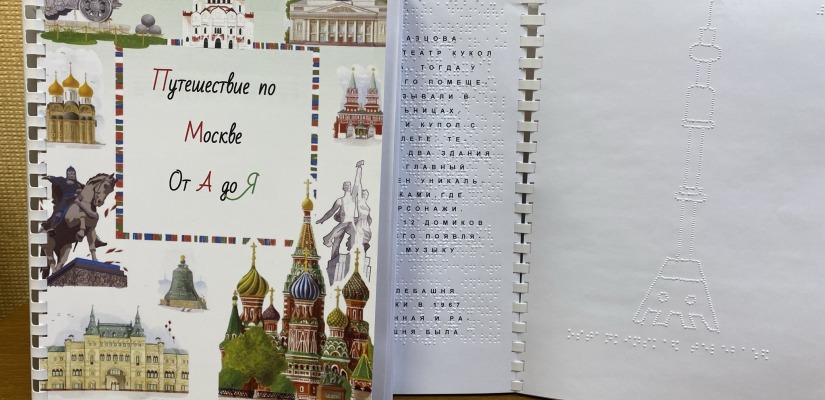 Путешествие по
Москве
От А до Я
АЗЦОВА
ТЕАТР КУКОЛ
ТОГДА У
ГО ПОМЕЩЕ-
ЗЫВАЛИ В
ЬНИЦАХ,
И КУПОЛ С
ЛЕТЕ ТЕ-
ДВА ЗДАНИЯ
ГЛАВНЫЙ
ЕН УНИКАЛЬ-
КАМИ, ГДЕ
РСОНАЖИ.
12 ДОМИКОВ
ГО ПОЯВЛЯ-
МУЗЫКУ
ЛЕБАШНЯ
КИ В 1967
ННАЯ И РА-
ШНЯ БЫЛА